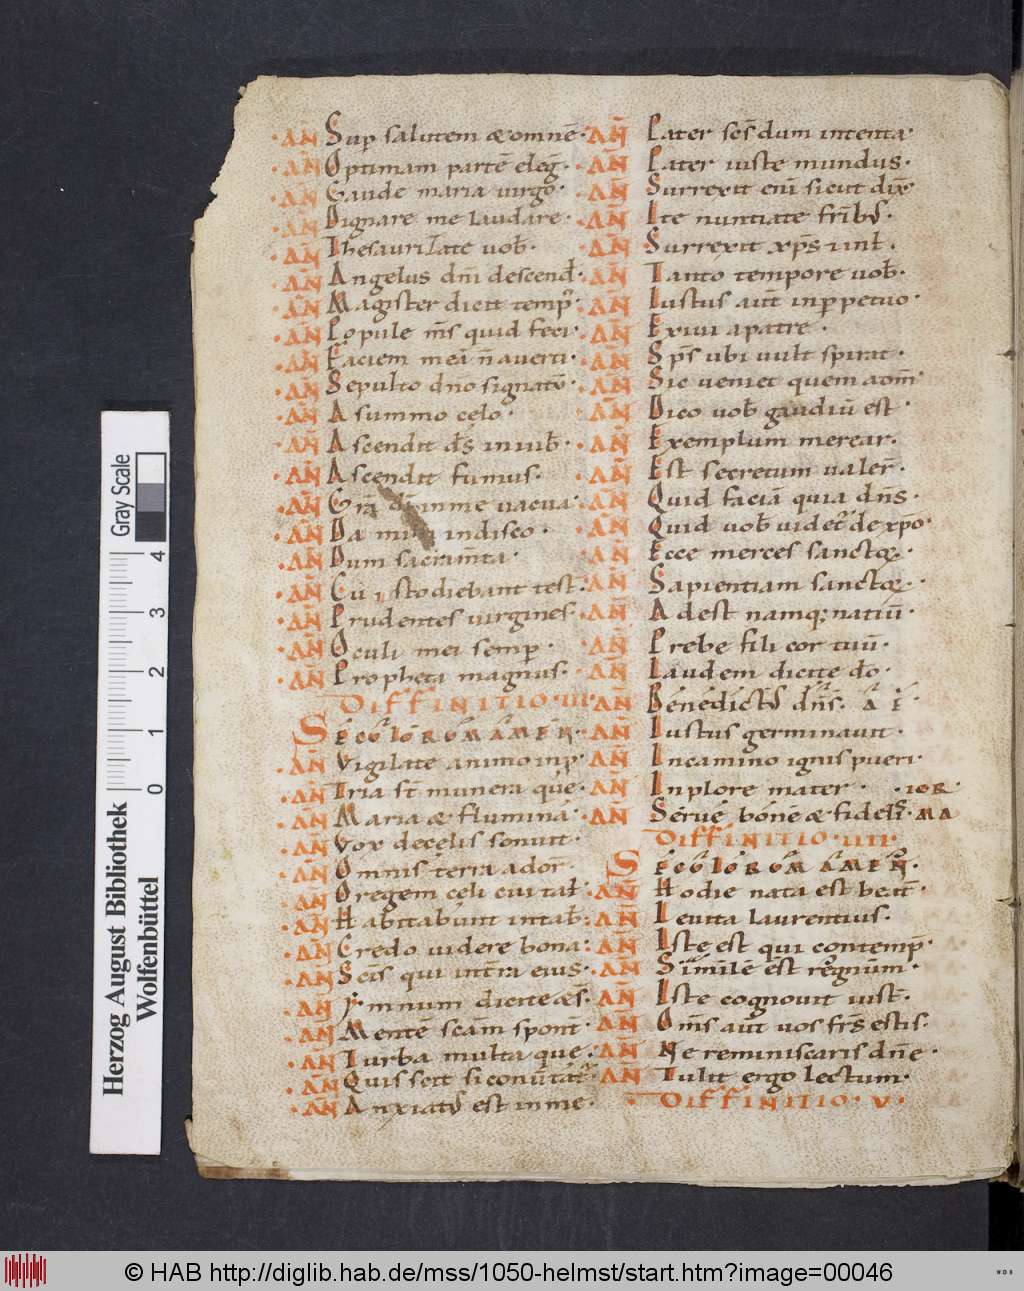 ·AN̄ Sup salutem & omnē·
·AN̄ Optimam partē eleḡ·
·AN̄ Gaude maria virgo·
·AN̄ Dignare me laudare·
·AN̄ Thesaurizate vob̄·
·AN̄ Angelus dn̄i descend·
·AN̄ Magister dicit temp̄·
·AN̄ Popule m̄s quid feci·
·AN̄ Faciem meā n̄ averti·
·AN̄ Sepulto dn̄o signatū·
·AN̄ A summo cęlo·
·AN̄ Ascendit d̄s in iub̄·
·AN̄ Ascendit fumus·
·AN̄ Gr̄a dī in me vacua·
·AN̄ Da mihi in disco·
·AN̄ Dum sacram̄ta·
·AN̄ Custodiebant test·
·AN̄ Prudentes virgines·
·AN̄ Oculi mei semp·
·AN̄ Propheta magnus·
DIFFINITIO·III·
SECULORUM AMEN·
·AN̄ Vigilate animo in p
·AN̄ Tria st̄ munera quę·
·AN̄ Maria & flumina·
·AN̄ Vox de cęlis sonuit·
·AN̄ Omnis terra ador̄·
·AN̄ O regem cęli cui tal·
·AN̄ Habitabunt in tab·
·AN̄ Credo videre bona:
·AN̄ Scis qui intra eius·
·AN̄ Ymnum dicite
·AN̄ Mente scām spont̄·
·AN̄ Turba multa quę·
·AN̄ Quis scit si convertat
·AN̄ Anxiatus est in me·
AN̄ Pater sc̄s dum intenta·
AN̄ Pater iuste mundus·
AN̄ Surrexit enī sicut dix̄·
AN̄ Ite nuntiate frib·
AN̄ Surrexit xp̄s
AN̄ Tanto tempore vob̄·
AN̄ Iustus aūt in ppetuo·
AN̄ Exivi a patre·
AN̄ Sp̄s ubi vult spirat·
AN̄ Sic veniet quem adm̄
AN̄ Dico vob̄ gaudiū est·
AN̄ Exemplum merear·
AN̄ Est secretum valer̄·
AN̄ Quid faciā quia dn̄s·
AN̄ Quid vob̄ videt de xp̄o·
AN̄ Ecce merces sanctoꝝ·
AN̄ Sapientiam sanctoꝝ·
AN̄ Adest namq; nativ·
AN̄ Prebe fili cor tuū·
AN̄ Laudem dicite dō·
AN̄ Benedictus dn̄s·
AN̄ Iustus germinavit·
AN̄ In camino ignis pueri·
AN̄ Inplore mater·
AN̄ Serve bone & fidel
DIFFINITIO·IIII·
SECULORUM AMEN·
AN̄ Hodie nata est beat̄·
AN̄ Levita Laurentius·
AN̄ Iste est qui contemp̄·
AN̄ Simile est regnum·
AN̄ Iste cognovit iust̄·
AN̄ Om̄s aūt vos fr̄s estis·
AN̄ Ne reminiscaris dn̄e·
AN̄ Tulit ergo lectum·
DIFFINITIO·V·
Herzog August Bibliothek
Wolfenbüttel
Gray Scale
0 1 2 3 4
© HAB http://diglib.hab.de/mss/1050-helmst/start.htm?image=00046